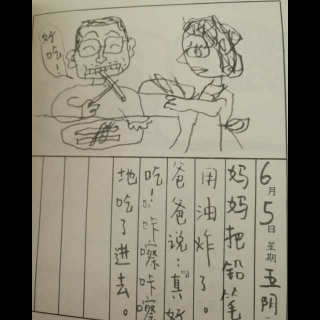 好吃！
6月5日 星期五 阴
妈妈把铅笔
用油炸了。
爸爸说：“真好
吃！”咔嚓咔嚓
地吃了进去。